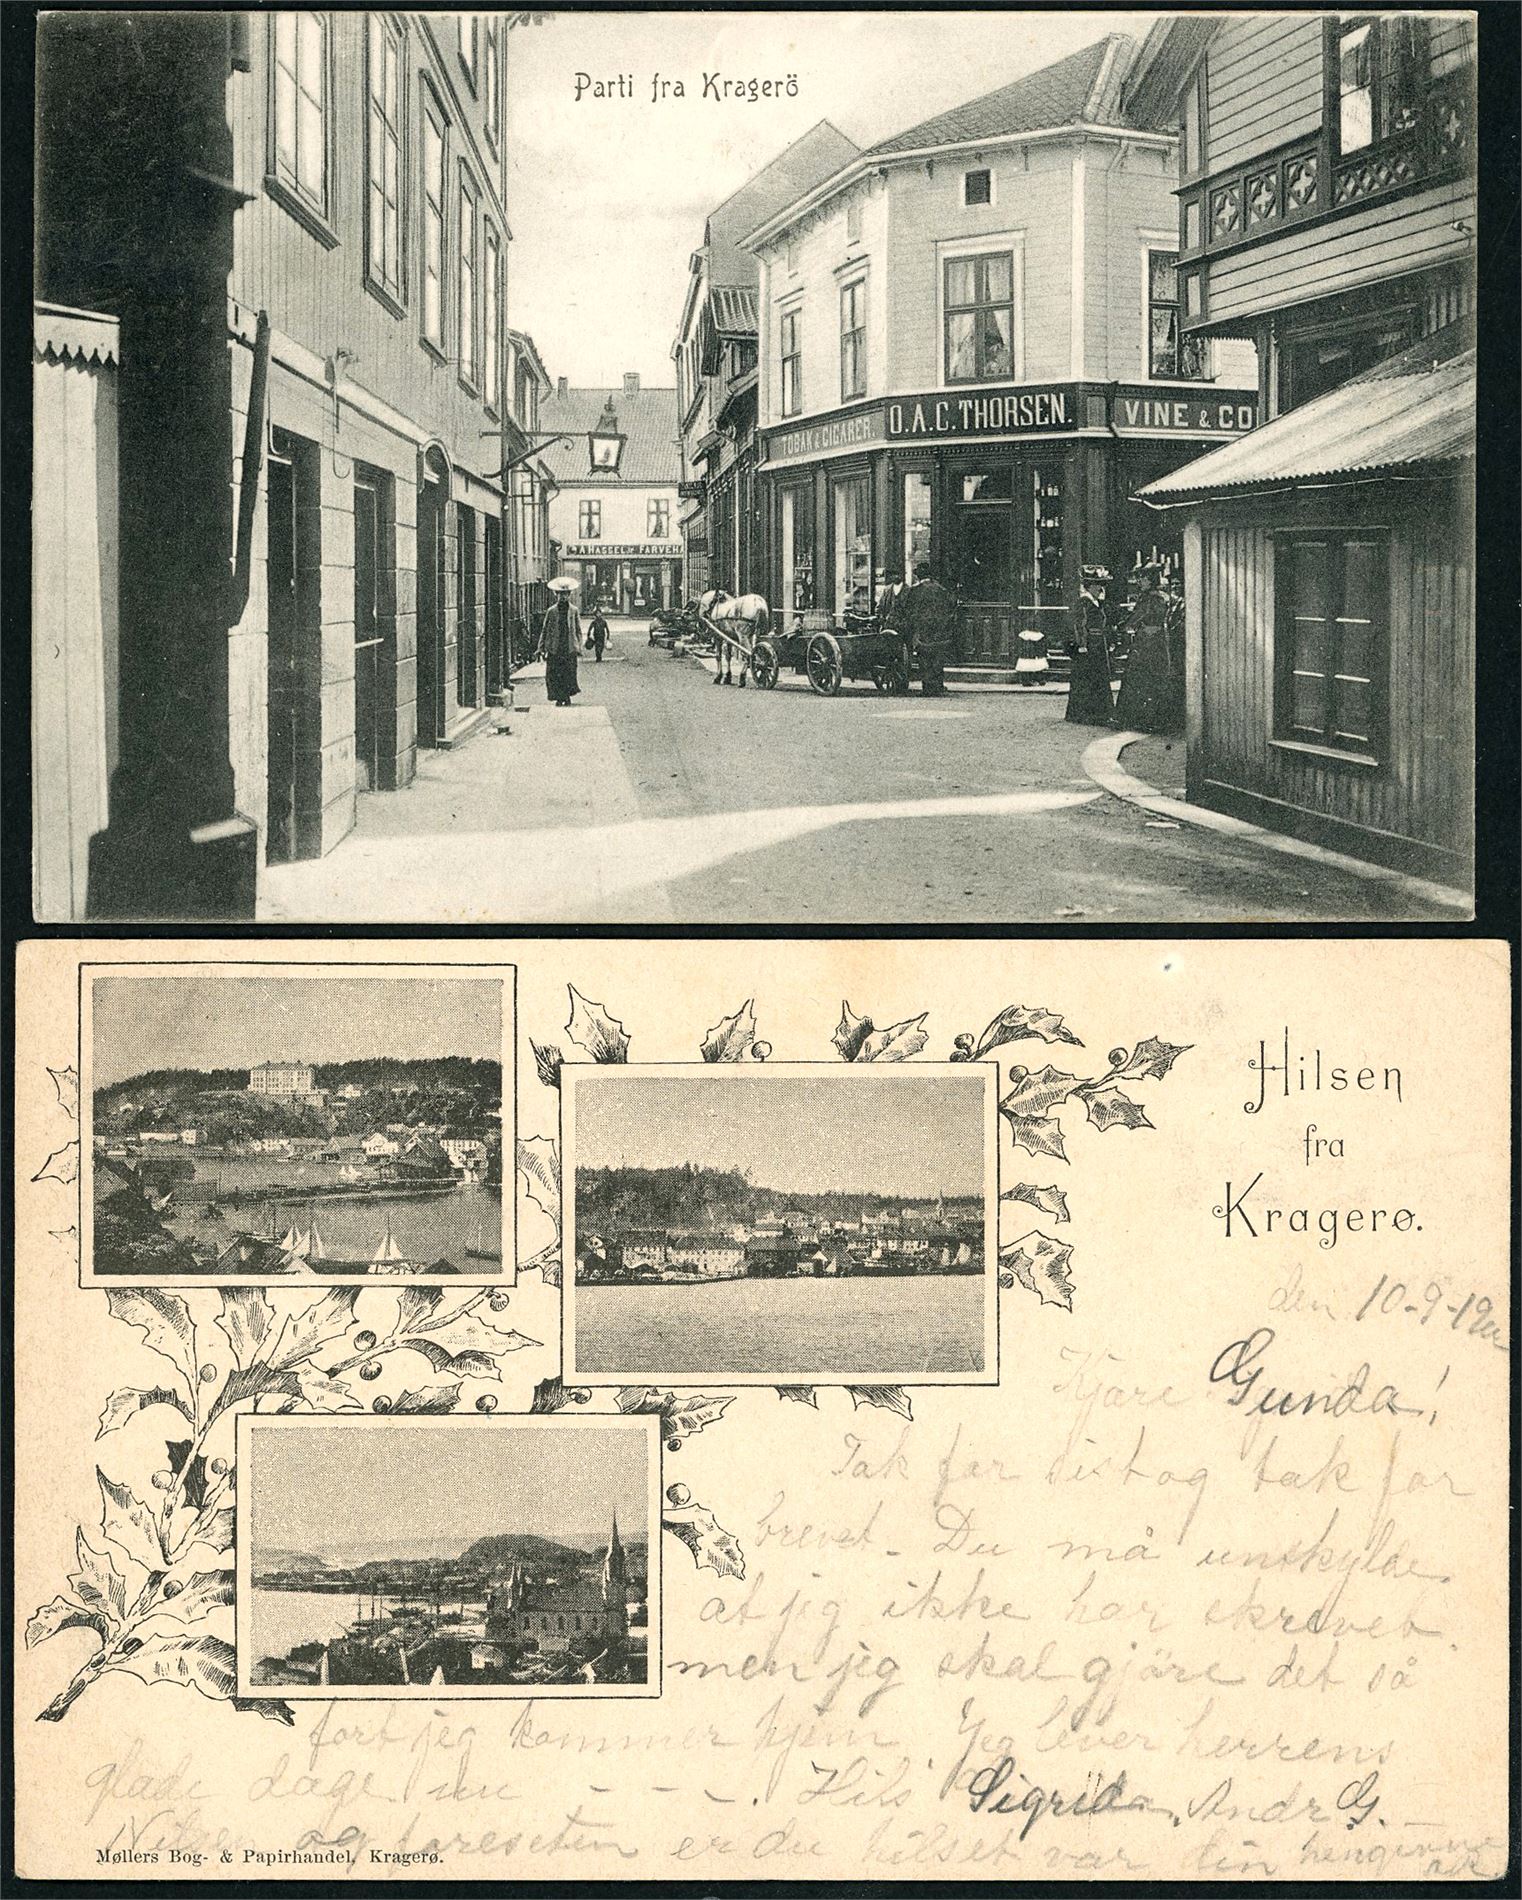 Parti fra Kragerö
O.A.C. THORSEN.
VINE & CO
TOBAK & CIGARER.
FARVEHA
Hilsen
fra
Kragerø.
den 10-9-19
Kjære Gunda!
Tak for sist og tak for
brevet. Du må unskylde
at jeg ikke har skrevet.
men jeg skal gjöre det så
fort jeg kommer hjem Jeg lever herrens
glade dage nu - - -. Hils Sigrid, Andr G.
Nilsen og foreseten er du hilset var din
Møllers Bog- & Papirhandel, Kragerø.